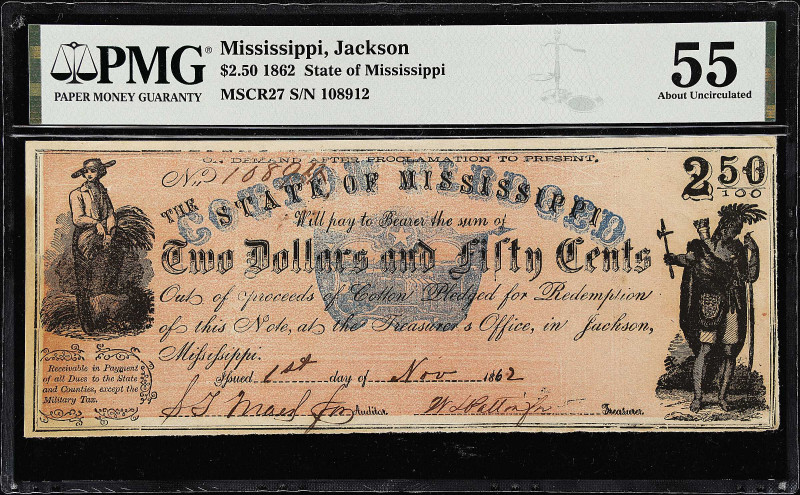 PMG®
PAPER MONEY GUARANTY
Mississippi, Jackson
$2.50 1862 State of Mississippi
MSCR27 S/N 108912
55
About Uncirculated
ON DEMAND AFTER PROCLAMATION TO PRESENT,
No. 108912
2 50/100
COTTON PLEDGED
THE STATE OF MISSISSIPPI
Will pay to Bearer the sum of
Two Dollars and Fifty Cents
Out of proceeds of Cotton Pledged for Redemption
of this Note, at the Treasurer's Office, in Jackson,
Mississippi.
Issued 1st day of Nov 1862
Receivable in Payment
of all Dues to the State
and Counties, except the
Military Tax.
Auditor. Treasurer.